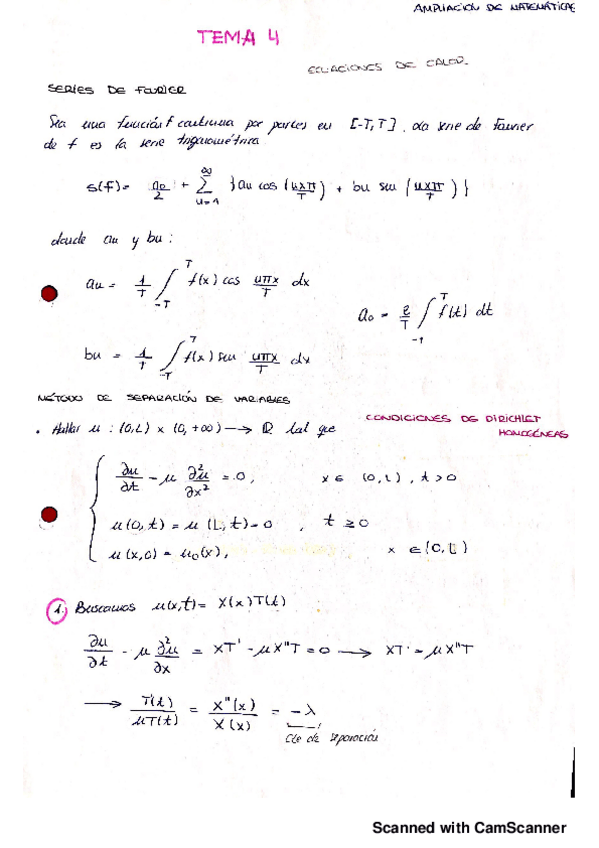 AMPLIACIÓN DE MATEMÁTICAS
TEMA 4
ECUACIONES DE CALOR.
SERIES DE FOURIER
Sea una función f continua por partes en [-T, T]. La serie de Fourier
de f es la serie trigonométrica
s(f) = a₀/2 + ∑_{n=1}^{∞} {an cos (nxπ/T) + bn sen (nxπ/T)}
donde an y bn :
an = 1/T ∫_{-T}^{T} f(x) cos nπx/T dx
a₀ = 2/T ∫_{-T}^{T} f(t) dt
bn = 1/T ∫_{-T}^{T} f(x) sen nπx/T dx
MÉTODO DE SEPARACIÓN DE VARIABLES
CONDICIONES DE DIRICHLET
HOMOGÉNEAS
• Hallar u : (0,L) x (0, +∞) → ℝ tal que
∂u/∂t - μ ∂²u/∂x² = 0, x ∈ (0, L), t > 0
u(0, t) = u(L, t) = 0 , t ≥ 0
u(x, 0) = u₀(x), x ∈ (0, L)
1. Buscamos u(x,t) = X(x)T(t)
∂u/∂t - μ ∂²u/∂x = XT' - μX"T = 0 → XT' = μX"T
→ T'(t)/μT(t) = X"(x)/X(x) = -λ
Cte de separación
Scanned with CamScanner